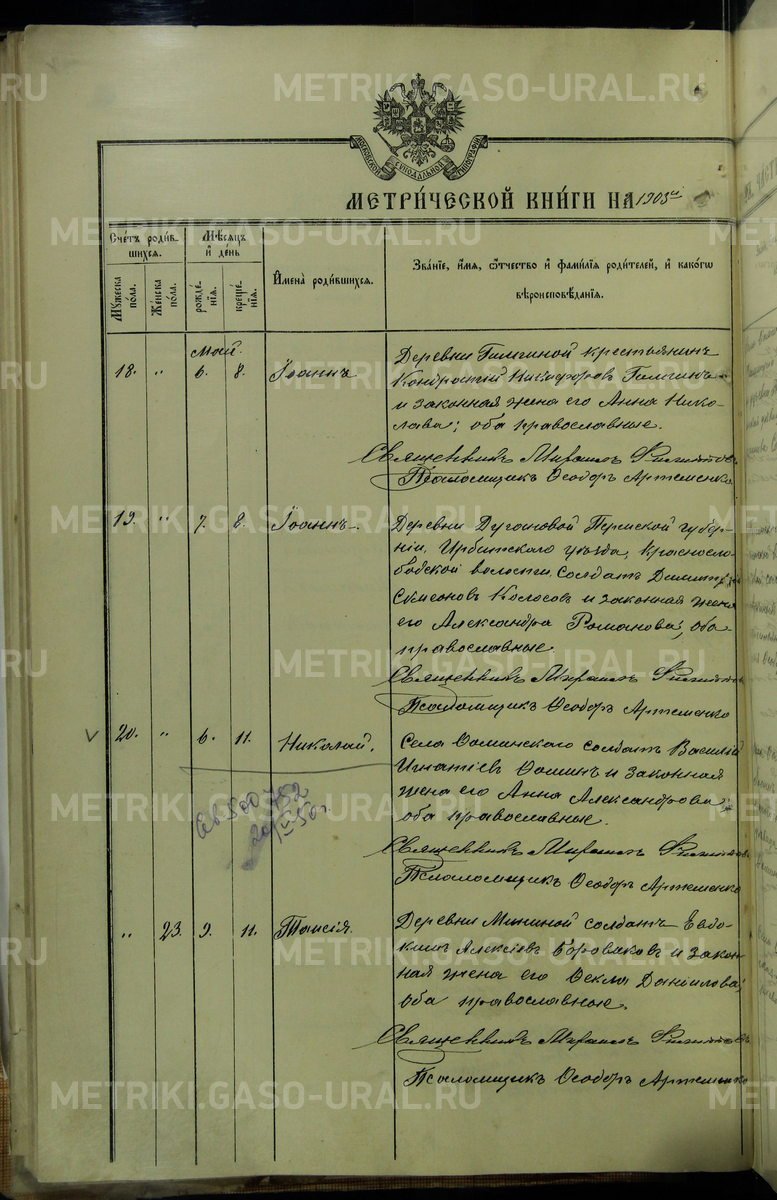 METRIKI.GASO-URAL.RU
МОСКОВСКОЙ СѴНОДАЛЬНОЙ ТИПОГРАФІИ
МЕТРИ́ЧЕСКОЙ КНИ́ГИ НА 1903й
Сче́тъ роди́вшихся.
Мꙋжеска по́ла.
Же́нска по́ла.
Мѣ́сяцъ и҆ де́нь
рожде́нїя.
креще́нїя.
И҆мена̀ роди́вшихся.
Зва́нїе, и҆́мя, ѻ҆́тчество и҆ фами́лїя роди́телей, и҆ како́гѡ
вѣроисповѣ́данїя.
Май.
18. „ 6. 8. Іоаннъ
Деревни Гилгиной крестьянинъ
Кондратій Никифоровъ Гилгинъ
и законная жена его Анна Нико-
лаева; оба православные.
Священникъ Михаилъ
Псаломщикъ Ѳеодоръ Артеменко
19. „ 7. 8. Іоаннъ.
Деревни Дугановой Пермской губер-
ніи, Ирбитскаго уѣзда, Красносло-
бодской волости, солдатъ Димитрій
Симеоновъ Колосовъ и законная жена
его Александра Романова; оба
православные.
Священникъ Михаилъ
Псаломщикъ Ѳеодоръ Артеменко
20. „ 6. 11. Николай.
Села Ѳоминскаго солдатъ Василій
Игнатіевъ Ѳоминъ и законная
жена его Анна Александрова;
оба православные.
Священникъ Михаилъ
Псаломщикъ Ѳеодоръ Артеменко
„ 23. 9. 11. Таисія.
Деревни Мининой солдатъ Евдо-
кимъ Алексіевъ Боровиковъ и закон-
ная жена его Ѳекла Даніилова;
оба православные.
Священникъ Михаилъ
Псаломщикъ Ѳеодоръ Артеменко